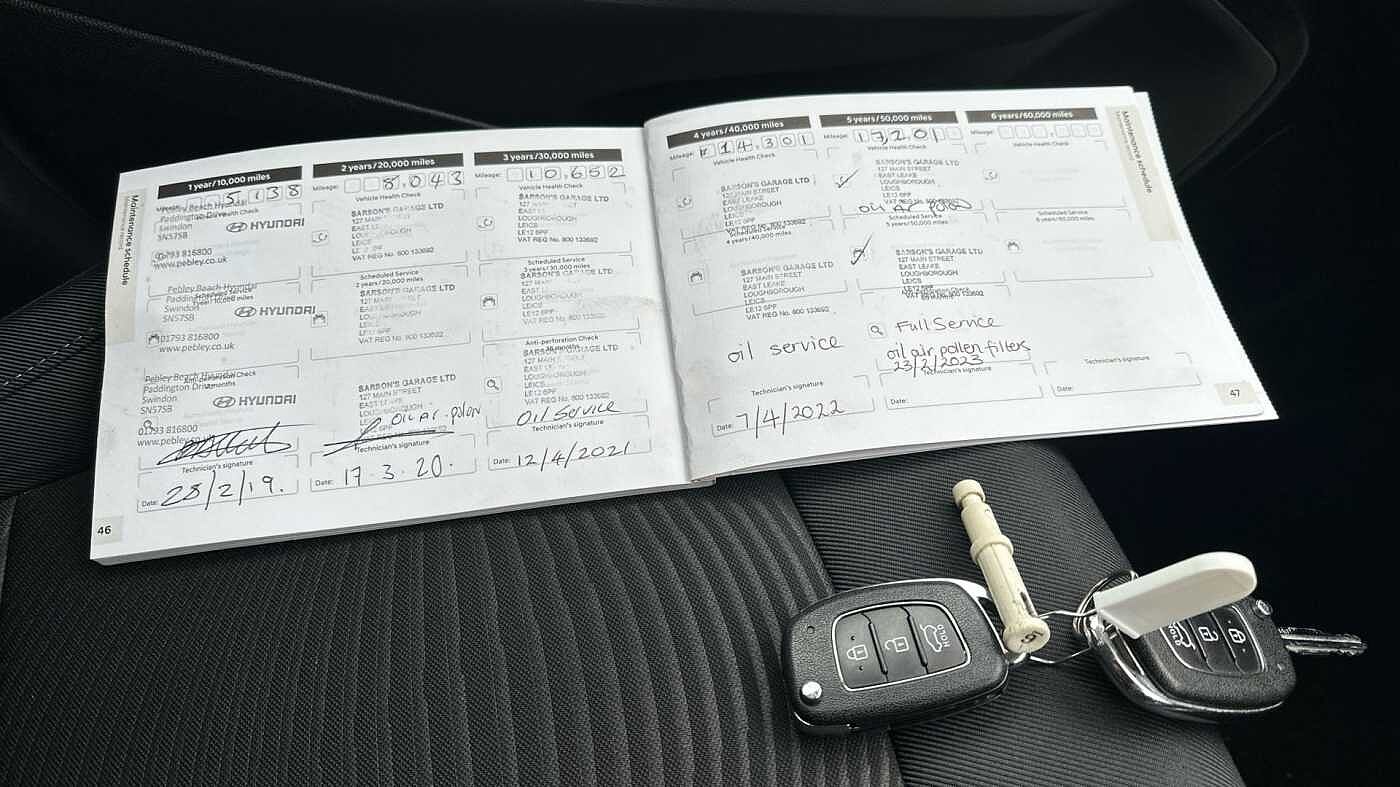 Maintenance schedule
1 year/10,000 miles
Mileage: 5,138
Pebley Beach Hyundai
Paddington Drive
Swindon
SN57SB
01793 816800
www.pebley.co.uk
HYUNDAI
Pebley Beach Hyundai
Paddington
Swindon
SN57SB
01793 816800
www.pebley.co.uk
HYUNDAI
Pebley Beach Hyundai
Paddington Drive
Swindon
SN57SB
01793 816800
www.pebley.co.uk
HYUNDAI
Technician's signature
Date: 28/2/19.
46
2 years/20,000 miles
Mileage: 8,043
Vehicle Health Check
SARSON'S GARAGE LTD
127 MAIN STREET
EAST
LOUGHBOROUGH
LEICS
LE12 6PF
VAT REG No. 800 133692
Scheduled Service
2 years/20,000 miles
SARSON'S GARAGE LTD
127 MAIN
EAST
LOUGHBOROUGH
VAT REG No. 800 133692
SARSON'S GARAGE LTD
127 MAIN STREET
EAST
OIL Air. polon
Technician's signature
Date: 17.3.20.
3 years/30,000 miles
Mileage: 10,652
Vehicle Health Check
SARSON'S GARAGE LTD
127 MAIN STREET
EAST
LOUGHBOROUGH
LEICS
LE12 6PF
VAT REG No. 800 133692
Scheduled Service
3 years/30,000 miles
SARSON'S GARAGE LTD
127 MAIN
EAST
LOUGHBOROUGH
LEICS
LE12 6PF
VAT REG No. 800 133692
Anti-perforation Check
SARSON'S GARAGE LTD
127 MAIN
EAST
LOUGHBOROUGH
LEICS
LE12 6PF
OIL Service
Technician's signature
Date: 12/4/2021
4 years/40,000 miles
Mileage: 14,301
Vehicle Health Check
SARSON'S GARAGE LTD
127 MAIN STREET
EAST LEAKE
LOUGHBOROUGH
LEICS
LE12 6PF
VAT REG No. 800 133692
Scheduled Service
4 years/40,000 miles
SARSON'S GARAGE LTD
127 MAIN STREET
EAST LEAKE
LOUGHBOROUGH
LEICS
LE12 6PF
VAT REG No. 800 133692
oil service
Technician's signature
Date: 7/4/2022
5 years/50,000 miles
Mileage: 17,201
Vehicle Health Check
SARSON'S GARAGE LTD
127 MAIN STREET
EAST LEAKE
LOUGHBOROUGH
LEICS
LE12 6PF
Scheduled Service
5 years/50,000 miles
SARSON'S GARAGE LTD
127 MAIN STREET
EAST LEAKE
LOUGHBOROUGH
LEICS
LE12 6PF
VAT REG No. 800 133692
Full Service
oil air, pollen filters
23/2/2023
Technician's signature
Date:
6 years/60,000 miles
Mileage:
Vehicle Health Check
Scheduled Service
6 years/60,000 miles
Technician's signature
Date:
Maintenance schedule
47
HOLD
HOLD